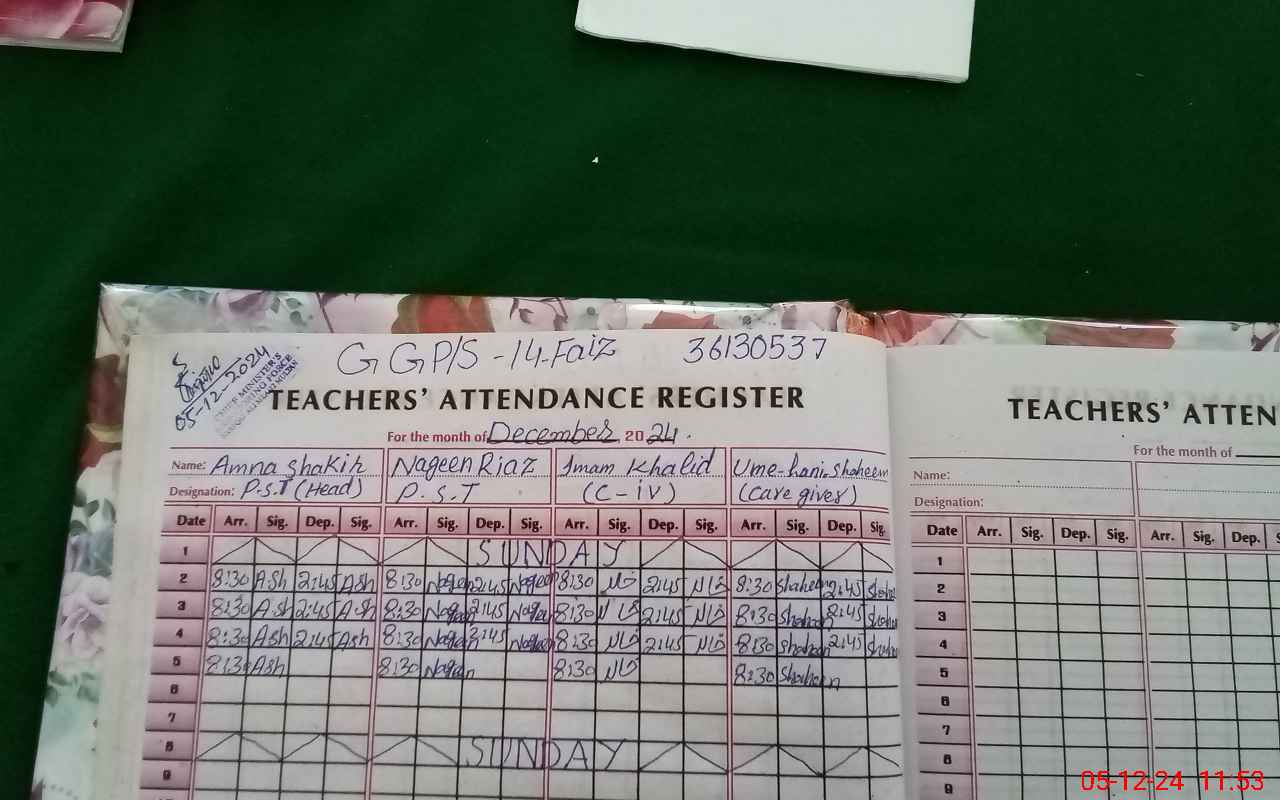 G GP/S - 14-Faiz 36130537
05-12-2024
CHIEF MINISTER'S
MONITORING FORCE
TEACHERS' ATTENDANCE REGISTER
For the month of December 2024.
Name: Amna Shakir Nageen Riaz Imam Khalid Ume-hani-Shaheem
Designation: P.S.T (Head) P.S.T (C-iv) (Care giver)
Date Arr. Sig. Dep. Sig. Arr. Sig. Dep. Sig. Arr. Sig. Dep. Sig. Arr. Sig. Dep. Sig.
1 SUNDAY
2 8:30 Ash 2:45 Ash 8:30 Nageen 2:45 Nageen 8:30 خالد 2:45 خالد 8:30 Shaheen 2:45
3 8:30 Ash 2:45 Ash 8:30 Nageen 2:45 Nageen 8:30 خالد 2:45 خالد 8:30 Shaheen 2:45
4 8:30 Ash 2:45 Ash 8:30 Nageen 2:45 Nageen 8:30 خالد 2:45 خالد 8:30 Shaheen 2:45
5 8:30 Ash 8:30 Nageen 8:30 خالد 8:30 Shaheen
6
7
8 SUNDAY
9
TEACHERS' ATTEN
For the month of
Name:
Designation:
Date Arr. Sig. Dep. Sig. Arr. Sig. Dep.
1
2
3
4
5
6
7
8
9
05-12-24 11.53